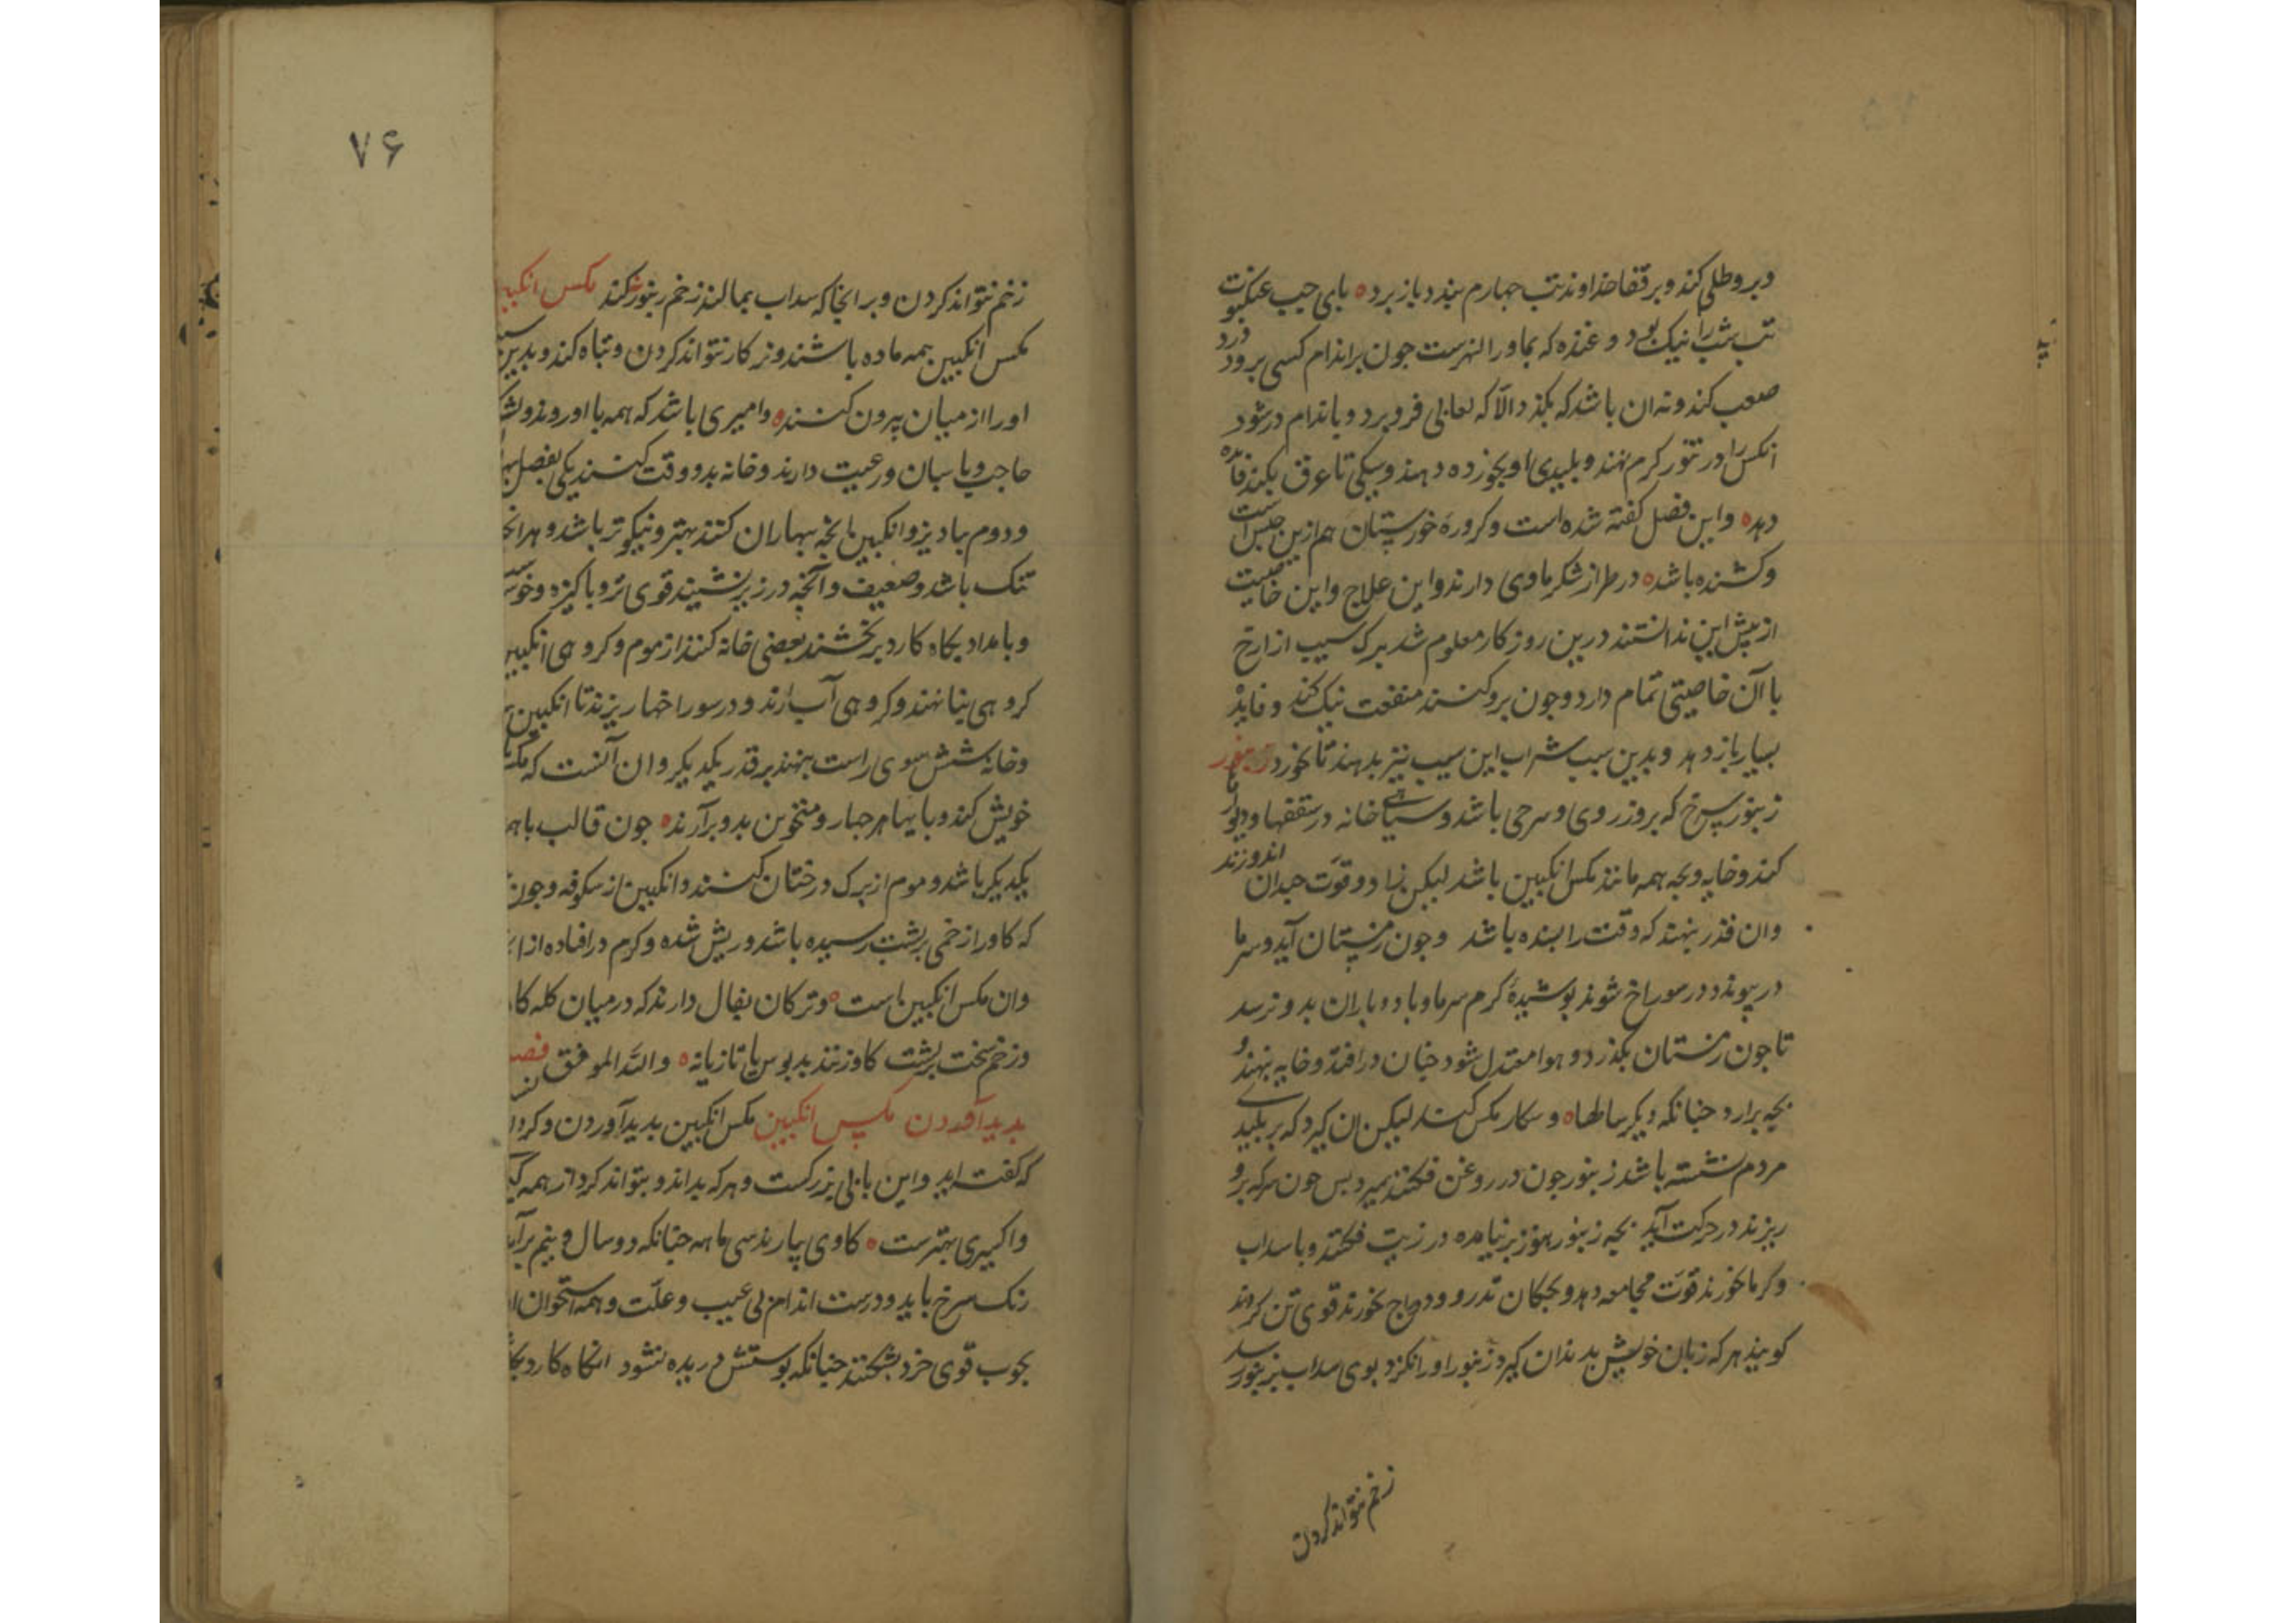 و برو طلی کند و بر قفا خداوند تب جهارم بندد باز برد ه بای جیب عنکبوت
تب شب را نیک بود و غنده که بماورا النهرست جون بر اندام کسی برود درد
صعب کند و نه ان باشد که بکذد الّا که لعابی فرو برد و باندام در شود
انکس را در تنور کرم نهند و بلیدی او بخوزده دهند و سیکی تا عرق بکند فایده
دهد ه و این فصل کفته شده است و کروره خورستان هم ازین جنس است
و کشنده باشد ه در طراز شکر ماوی دارند و این علاج و این خاصیت
از پیش این ندانستند درین روزکار معلوم شد برک سیب از ارخ
با آن خاصیتی تمام دارد و جون برو کنند منفعت نیک کند و فایده
بسیار باز دهد و بدین سبب شراب این سیب نیز بدهند تا بخورد زنبور
زنبور سرخ که بروزردی و سرخی باشد و سیاهی خانه در سقفها و دیوارها
کند و خایه و بچه همه مانند مکس انکبین باشد لیکن زاد و قوت جندان اندوزند
وان قدر نهند که وقت را بسنده باشد و جون زمستان آید و سرما
در بیوندد در سوراخ شوند بوشیدهٔ کرم سرما و باد و باران بدو نرسد
تا جون زمستان بکذرد و هوا معتدل شود جنان در افتد و خایه بنهند و
بچه برارد جنانکه دیکر سالها ه و شکار مکس کنند لیکن ان کیرد که بر بلیدی
مردم نشسته باشد زنبور جون در روغن فکنند بمیرد بس جون سرکه برو
ریزند در حرکت آید بچه زنبور هنوز بر نیامده در زیت فکنند و با سداب
و کرما خورند قوّت مجامعه دهد و بچکان تدرو و دراج بخورند قوی تن کرداند
کویند هر که زبان خویش بدندان کیرد زنبور او را نکزد بوی سداب بزنبور رسد
زخم نتواند کردن
۷۶
زخم نتواند کردن و بر انجا که سداب بمالند زخم زنبور نکند مکس انکبین
مکس انکبین همه ماده باشند و نر کار نتواند کردن و تباه کند و بدین
او را از میان بیرون کنند ه و امیری باشد که همه با او روند و
حاجب و باسبان و رعیت دارند و خانه بدو وقت کنند یکی بفصل
و دوم بادیز و انکبین بانچه بهاران کنند بهتر و نیکوتر باشد و هر
تنک باشد و ضعیف و آنچه در زیر نشیند قوی تر و باکیزه و
و بامداد بکاه کار در بخشند بعضی خانه کنند از موم و کروهی انکبین
کروهی بنا نهند و کروهی آب آرند و در سوراخها ریزند تا انکبین
و خانه شش سوی راست بنهند بر قدر یکدیکر و ان آنست که
خویش کند و بایها هر جهار و متخوین بدو بر آرند ه جون قالب با
یکدیکر باشد و موم از برک درختان کنند و انکبین از شکوفه و جون
که کاو را زخمی بر بشت رسیده باشد و ریش شده و کرم در افتاده از
وان مکس انکبین است ه و ترکان بفال دارند که در میان کله
و زخم سخت بر بشت کاو زنند بدبوس یا تازیانه ه والله الموفق
بدید آوردن مکس انکبین مکس انکبین بدید آوردن و
که کفته اید و این بابی بزرکست و هر که بداند و بتواند کرد از همه
و اکسیری بهترست ه کاوی بیارند سی ماهه جنانکه دو سال و نیم
رنک سرخ باید و درست اندام بی عیب و علّت و همه استخوان
بجوب قوی خرد بشکنند جنانکه بوستش دریده نشود انکاه کارد